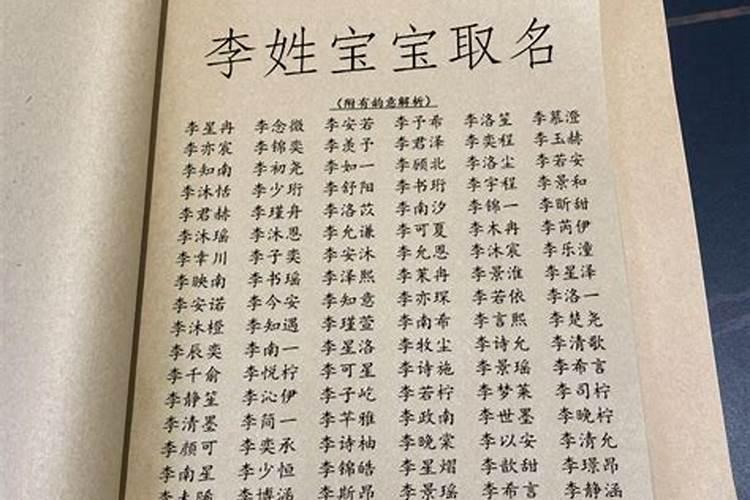 李姓宝宝取名
(附有韵意解析)
李星冉 李念微 李安若 李予希 李洛笙 李慕澄
李亦宸 李锦奕 李羡予 李君泽 李奕程 李玉赫
李知南 李初尧 李如一 李顾北 李洛尘 李若安
李沐恬 李少珩 李舒阳 李书珩 李宇程 李景和
李君赫 李瑾舟 李洛苡 李南汐 李锦一 李昕甜
李沐瑶 李沐恩 李允谦 李可夏 李木冉 李芮伊
李聿川 李子奕 李安沐 李允恩 李沐宸 李乐潼
李映南 李书瑶 李泽熙 李茉冉 李景淮 李星泽
李安诺 李今安 李知意 李亦琛 李若依 李洛一
李沐橙 李知遇 李瑾萱 李南希 李言熙 李楚尧
李辰奕 李南一 李星洛 李牧尘 李诗允 李清歌
李千俞 李悦柠 李可星 李诗施 李景瑶 李希言
李静笙 李沁伊 李子屹 李若柠 李梦莱 李司柠
李清墨 李简一 李芊雅 李政南 李世墨 李晚柠
李颜可 李奕承 李诗柚 李晚棠 李以安 李清允
李南星 李少恒 李锦皓 李星熠 李歆甜 李璟昂
李博涵 李斯昂 李景瑶 李希言 李静涵